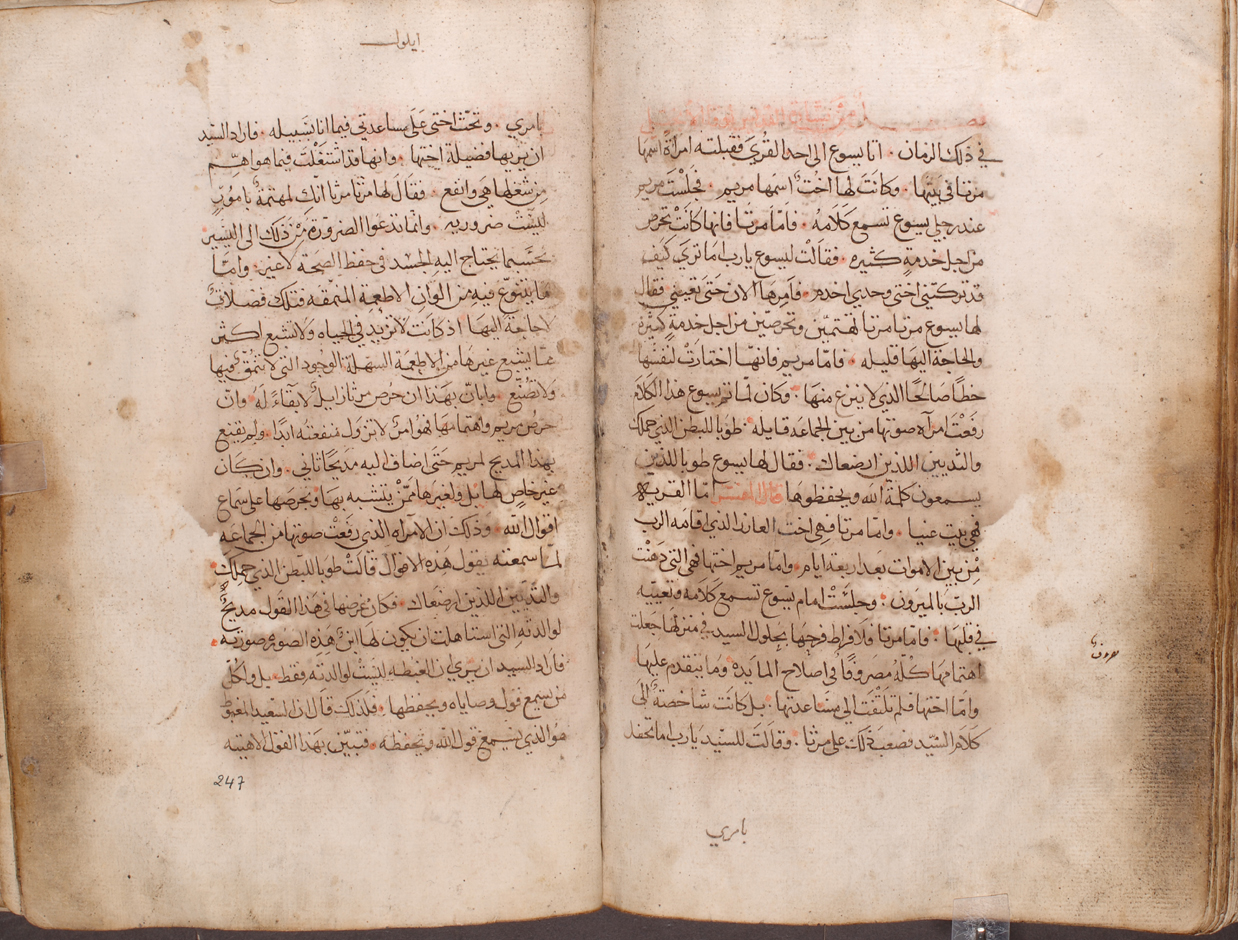 في ذلك الزمان · اتا يسوع الى احدا القرى فقبلته امراة اسمها
مرتا في بيتها · وكانت لها اخت اسمها مريم · فجلست مريم
عند رجلي يسوع تسمع كلامه · فاما مرتا فانها كانت تحرص
من اجل خدمه كثيره · فقالت ليسوع يارب اما ترى كيف
قد تركتني اختي وحدي اخدم · فامرها الان حتى تعيني فقال
لها يسوع مرتا مرتا تهتمين وتحرصين من اجل خدمه كثيرة
والحاجة اليها قليله · فاما مريم فانها اختارت لنفسها
حظا صالحا الذي لا ينزع منها · وكان لما تم يسوع هذا الكلام
رفعت امرآه صوتها من بين الجماعه قايله · طوبا للبطن الذي حملك
والثديين اللذين ارضعاك · فقال لها يسوع طوبا للذين
يسمعون كلمة الله ويحفظوها قال المفسر اما القريه
فهي بيت عنيا · واما مرتا فهي اخت العازر الذي اقامه الرب
من بين الاموات بعد اربعة ايام · واما مريم اختها فهي التي دهنت
الرب بالميرون · وجلست امام يسوع تسمع كلامه وتعييه
في قلبها · فاما مرتا فلافراط فرحها بحلول السيد في منزلها جعلت
اهتمامها كله مصروفا في اصلاح المايده وما يتقدم عليها
واما اختها فلم تلتفت الى مساعدتها · بل كانت شاخصة الى
كلام السيد فصعب ذلك على مرتا · وقالت للسيد يارب اما تحفل
بامري
ايلول
بامري · وتحث اختي على مساعدتي فيما انا بسبيله · فاراد السيد
ان يريها فضيلة اختها · وانها قد اشتغلت فيما هو اهم
من شغلها هي وانفع · فقال لها مرتا مرتا انك لمهتمة بامور
ليست ضروريه · وانما تدعوا الضرورة من ذلك الى اليسير
بحسب ما يحتاج اليه الجسد في حفظ الصحة لا غير · واما
ما يتنوع فيه من الوان الاطعمة المنمقه فتلك فضلات
لا حاجة اليها اذ كانت لا تزيد في الحياه ولا تشبع اكثر
مما يشبع غيرها من الاطعمة السهلة الوجود التي لا يتنمق فيها
ولا تصنع · وابان بهذا ان حرص مرتا زايل لا بقاء له · وان
حرص مريم واهتمامها فهو امر لا تزول منفعته ابدا · ولم يقنع
بهذا المديح لمريم حتى اضاف اليه مديحا ثاني · وان كان
غير خاص لها بل ولغيرها ممن يتشبه بها وبحرصها على سماع
اقوال الله · وذلك ان الامراه الذي رفعت صوتها من الجماعه
لما سمعته يقول هذه الاقوال قالت طوبا للبطن الذي حملك
والثديين اللذين ارضعاك · فكان غرضها في هذا القول مديح
لوالدته التي استاهلت ان يكون لها ابن هذه الصوره صورته
فاراد السيد ان يرى ان الغبطه ليست لوالدته فقط · بل ولكل
من يسمع قول وصاياه ويحفظها · فلذلك قال ان السعيد المغبوط
هو الذي يسمع قول الله ويحفظه · فتبين بهذا القول لاهتيه
247